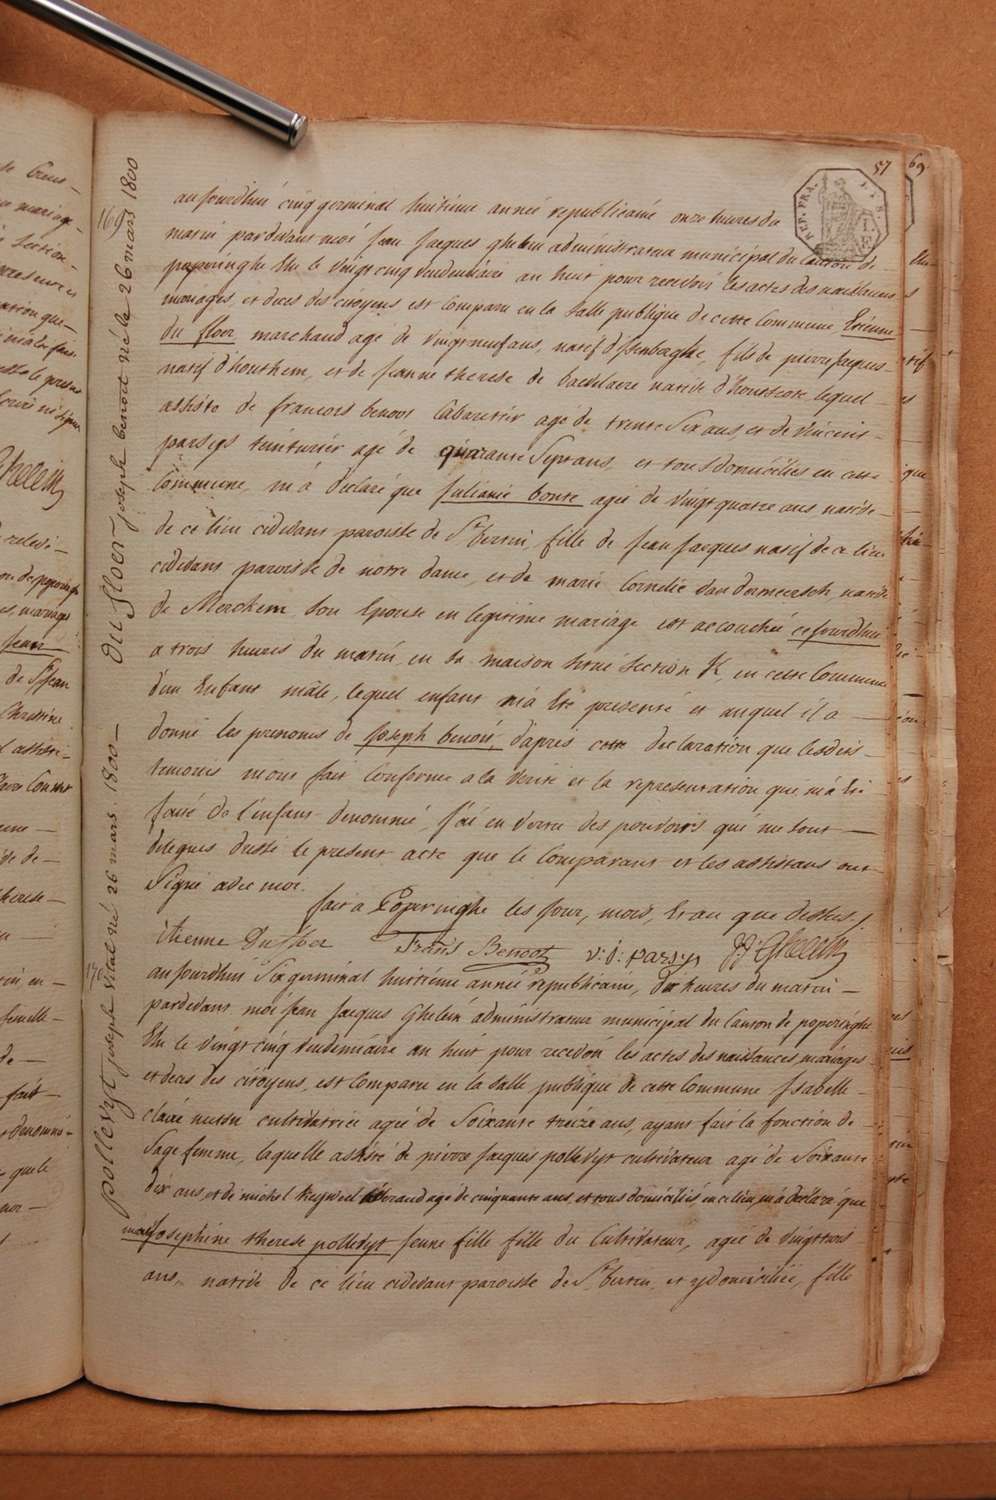 57
69
REP. FRA.
169
du floer joseph benoit né le 26 mars 1800
26 mars 1800
aujourdhui cinq germinal huitieme année republicaine onze heures du
matin pardevant moi jean jacques ghelein administrateur municipal du canton de
poperinghe Elu le vingt cinq vendemiaire an huit pour recevoir les actes des naissances
mariages, et deces des citoyens est comparu en la salle publique de cette commune Etienne
du floer marchand agé de vingt neuf ans, natif d'isenberghe, fils de pierre jacques
natif d'houthem, et de jeanne therese de baedelaere native d'hontscote lequel
assisté de francois benoot cabaretier agé de trente six ans, et de vincent
parseys teinturier agé de quarante sept ans, et tous domiciliés en cette
commune, m'a declaré que julianne bonte agée de vingt quatre ans native
de ce lieu cidevant paroisse de St bertin, fille de jean jacques natif de ce lieu
cidevant paroisse de notre dame, et de marie cornelie vandermeersch native
de Merckem son epouse en legitime mariage est accouchée cejourdhui
a trois heures du matin, en sa maison situé section K, en cette commune
d'un Enfant mâle, lequel enfant m'a eté presenté et auquel il a
donné les prenoms de joseph benoit, d'après cette declaration que lesdits
temoins m'ont fait conforme a la verité et la representation qui m'a eté
faite de l'enfant denommé, j'ai en vertu des pouvoirs qui me sont
delegués dressé le present acte que le comparant et les assistans ont
signé avec moi.
fait a Poperinghe les jour, mois, et an que dessus.
etienne Dufloer Frans Benoot v: j: parsys JJ Ghelein
170
pollevyt joseph vital né 26 mars 1800
aujourdhui six germinal huitieme année republicaine, dix heures du matin
pardevant moi jean jacques Ghelein administrateur municipal du canton de poperinghe
Elu le vingt cinq vendemiaire an huit pour recevoir les actes des naissances mariages
et deces des citoyens, est comparu en la salle publique de cette commune Isabelle
claire cultivatrice agée de soixante treize ans, ayant fait la fonction de
sage femme, laquelle assisté de pierre jacques pollevyt cultivateur agé de soixante
dix ans, et de michel agé de cinquante ans et tous domiciliés en ce lieu, m'a declaré que
marie josephine therese pollevyt jeune fille fille du cultivateur, agée de vingt trois
ans, native de ce lieu cidevant paroisse de St bertin, et y domiciliée, fille